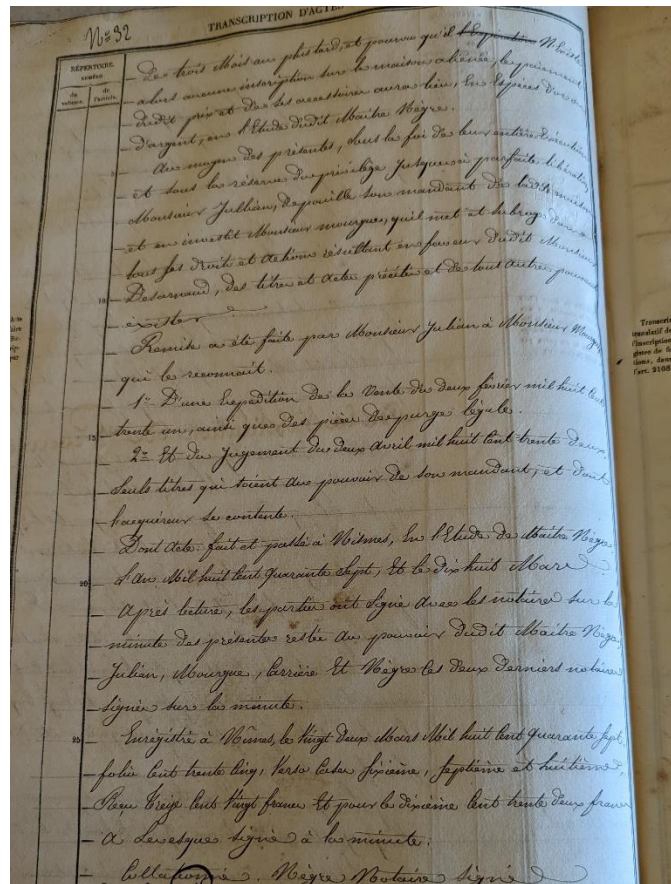 N° 32
TRANSCRIPTION D'ACTES
RÉPERTOIRE.
numéro
du volume.
de l'article.
De trois Mois au plus tard, et pourvu qu'il l'expiration N'existe
alors aucune inscription sur la maison aliénée, le paiement
dudit prix et de ses accessoires aura lieu, En Espèces d'or ou
d'argent, en l'Etude dudit Maitre Nègre.
5
Au moyen des présentes, sous la foi de leur entière Exécution
et sous la réserve du privilège jusques à parfaite libération,
Monsieur Jullian, Dépouille son mandant de ladite maison
et en investit Monsieur mourgues, qu'il met et subroge dans
tous ses Droits et Actions résultant en faveur Dudit Monsieur
10
Desarnaud, des titres et Actes précités et de tout Autre pouvant
exister
Remise a été faite par Monsieur Julian à Monsieur Mourgue
qui le reconnait.
1° D'une Expédition de la Vente du deux février mil huit Cent
15
trente un, ainsi que des pièces de purge légale.
2° Et du Jugement du deux Avril mil huit Cent trente Deux
Seuls titres qui soient au pouvoir de son mandant, et dont
l'acquéreur se contente.
Dont Acte. fait et passé à Nismes, En l'Etude de Maitre Nègre
20
L'An Mil huit Cent Quarante Sept, Et le Dix huit Mars
Après lecture, les parties ont Signé Avec les notaires sur la
minute des présentes restée au pouvoir Dudit Maitre Nègre,
Julian, Mourgue, Carrière Et Nègre les Deux Derniers notaires
signés sur la minute.
25
Enrégistré à Nîmes, le Vingt Deux Mars Mil huit Cent Quarante Sept,
folio Cent trente Cinq, Verso Cases Sixième, Septième et huitième,
Reçu Treize Cent Vingt francs Et pour le dixième Cent trente Deux francs
A Levesque signé à la minute.
Collationné. Nègre Notaire Signé
Transcrip
translatif de
l'inscription
gistre de fo
tions, dans
l'art. 2108